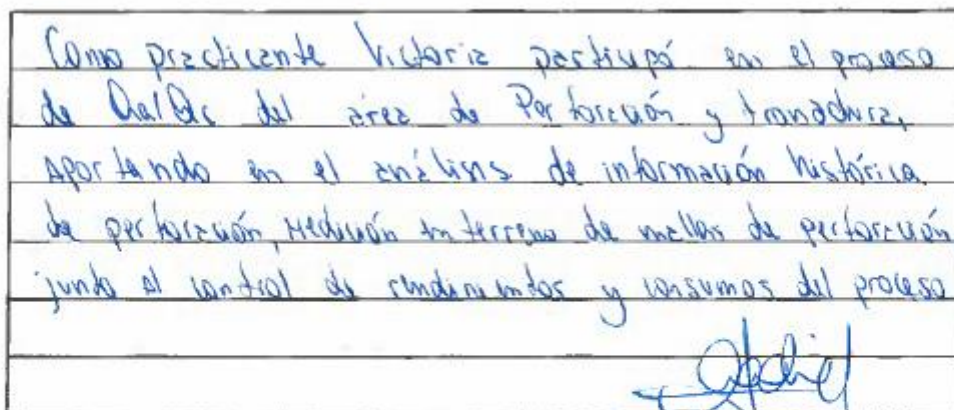 Como practicante Victoria participó en el proceso
de QaQc del área de Perforación y tronadura,
aportando en el análisis de información histórica
de perforación, Medición en terreno de mallas de perforación
junto al control de rendimientos y consumos del proceso